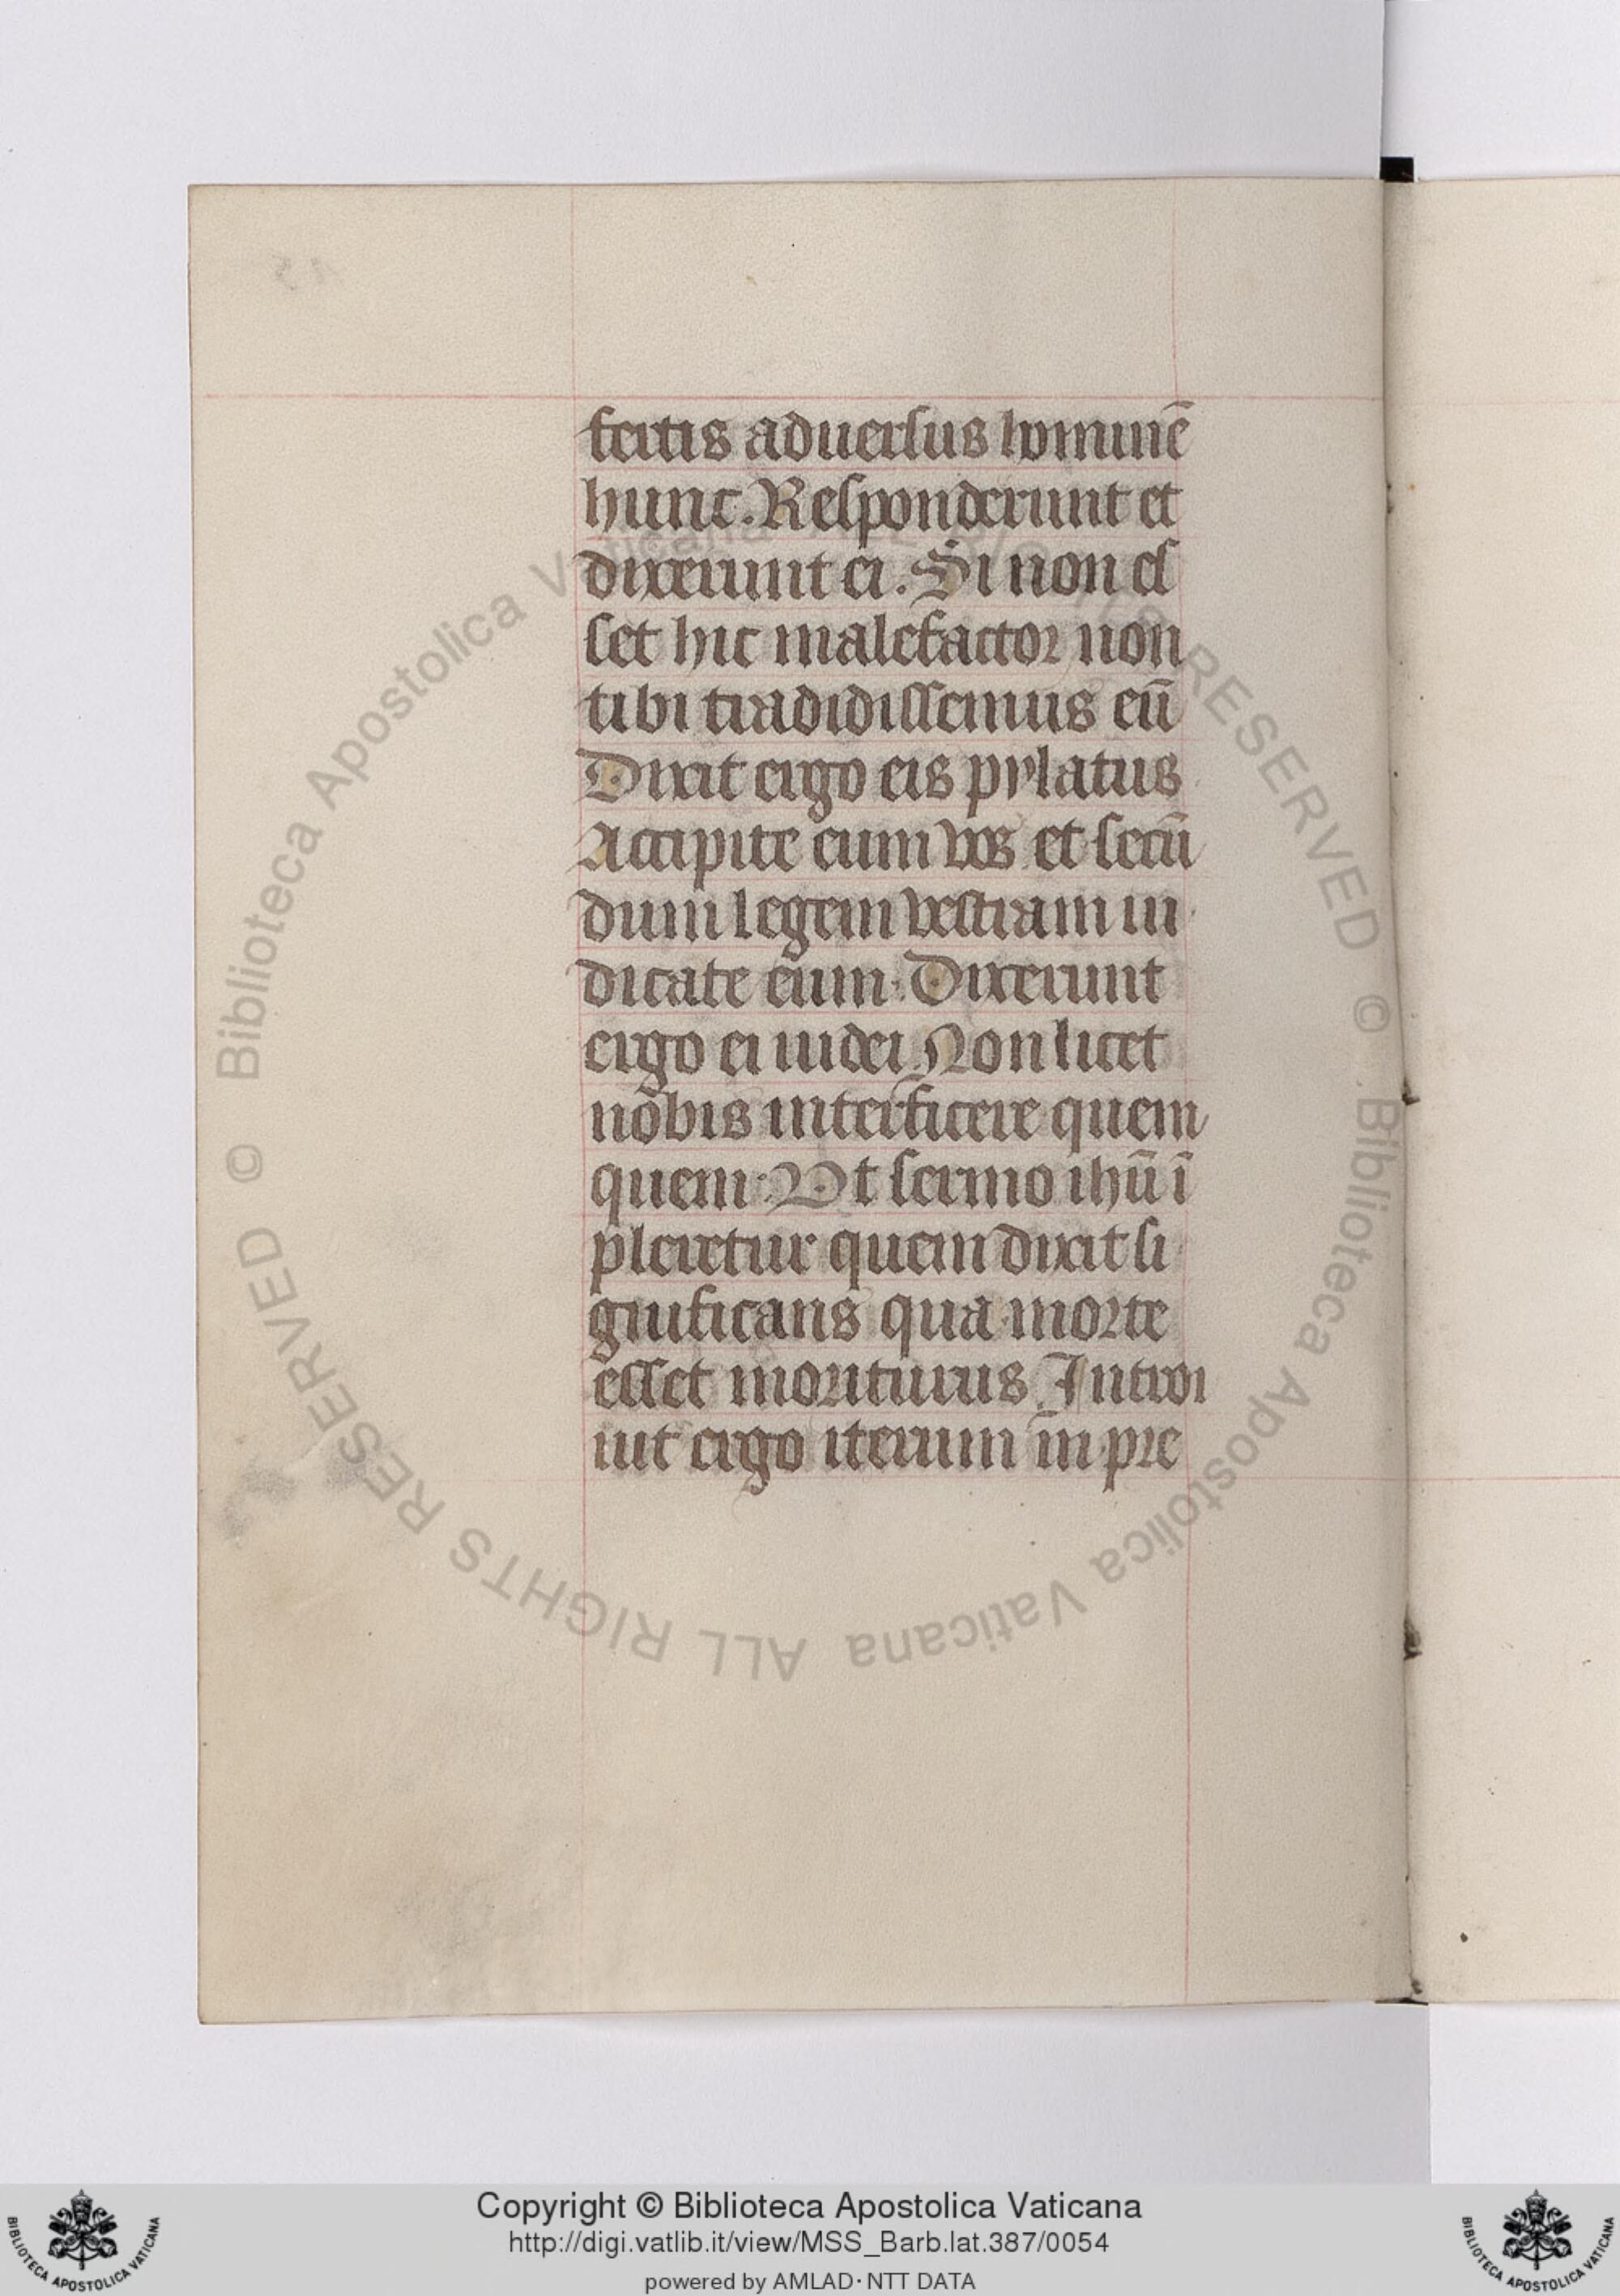 fertis aduersus hominē
hunc. Responderunt et
dixerunt ei. Si non es
set hic malefactor non
tibi tradidissemus eū
Dixit ergo eis pylatus
Accipite eum vos et secū
dum legem vestram iu
dicate eum. Dixerunt
ergo ei iudei. Non licet
nobis interficere quem
quem. Vt sermo ihū ī
pleretur quem dixit si
gnificans qua morte
esset moriturus. Introi
iut ergo iterum in pre
© Biblioteca Apostolica Vaticana ALL RIGHTS RESERVED
© Biblioteca Apostolica Vaticana ALL RIGHTS RESERVED
Copyright © Biblioteca Apostolica Vaticana
http://digi.vatlib.it/view/MSS_Barb.lat.387/0054
powered by AMLAD·NTT DATA
BIBLIOTECA APOSTOLICA VATICANA
BIBLIOTECA APOSTOLICA VATICANA